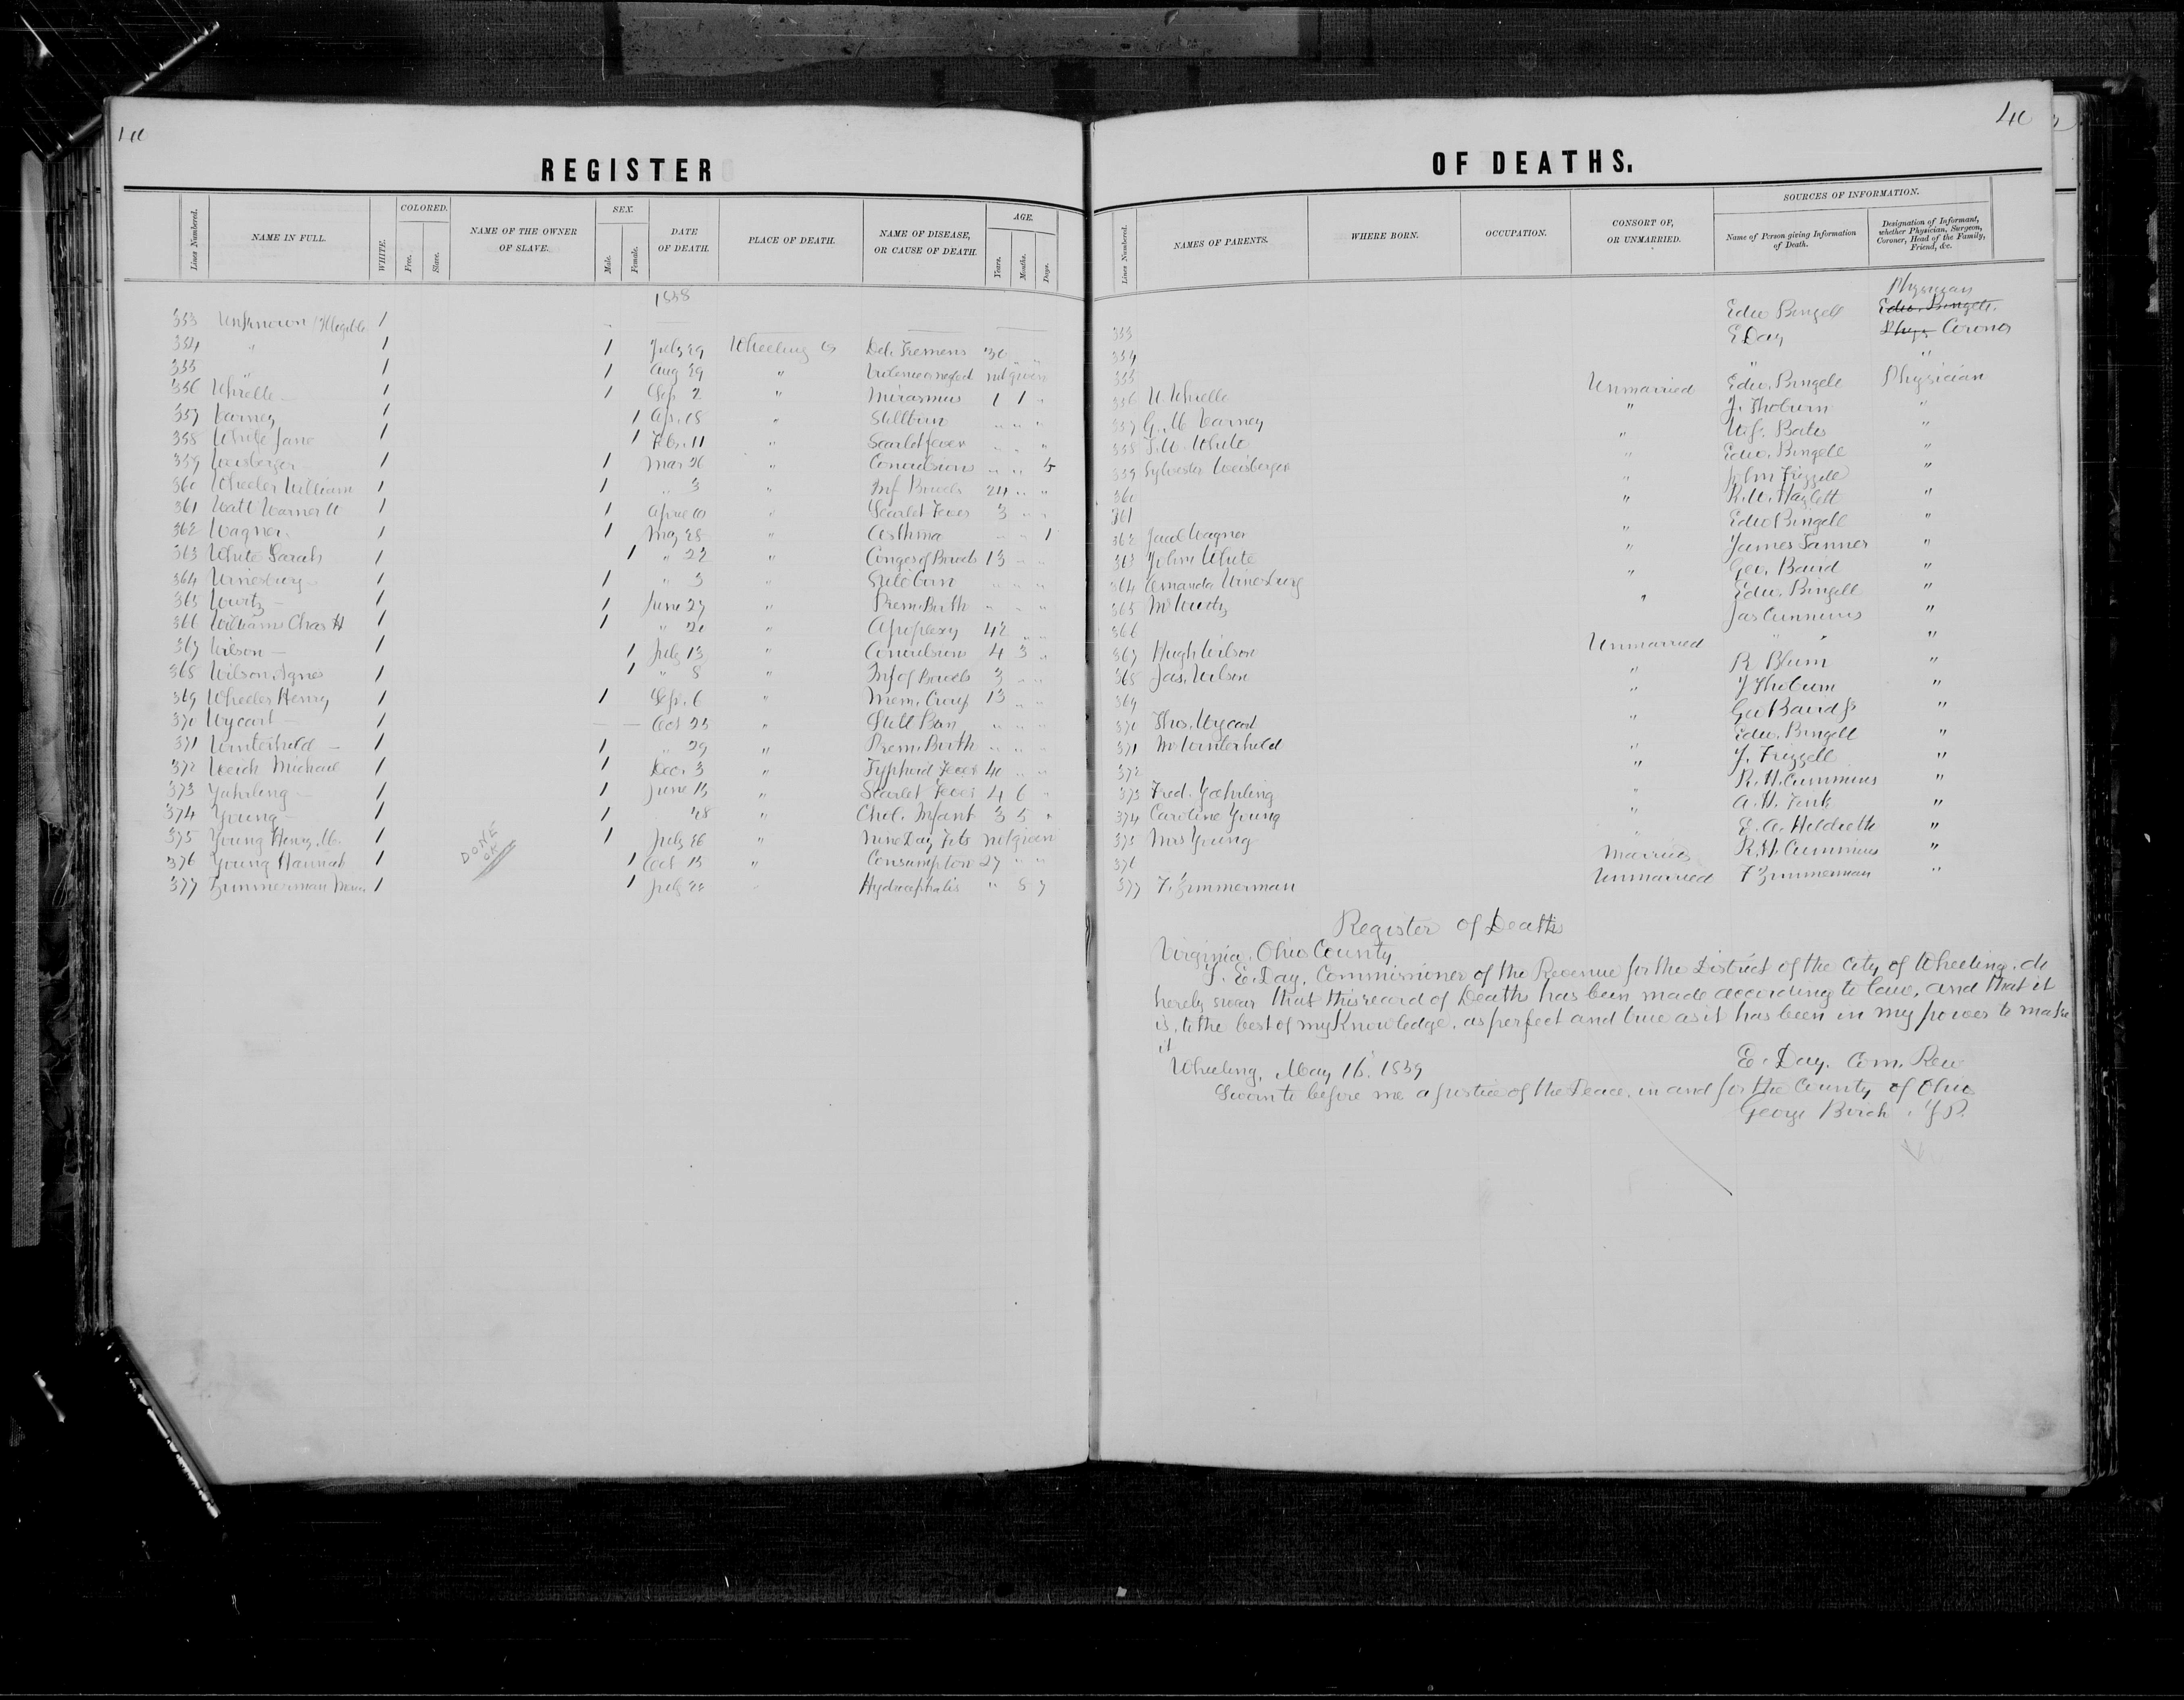 40
40
REGISTER OF DEATHS.
Lines Numbered. NAME IN FULL. WHITE. COLORED. Free. Slave. NAME OF THE OWNER OF SLAVE. SEX. Male. Female. DATE OF DEATH. PLACE OF DEATH. NAME OF DISEASE, OR CAUSE OF DEATH. AGE. Years. Months. Days.
Lines Numbered. NAMES OF PARENTS. WHERE BORN. OCCUPATION. CONSORT OF, OR UNMARRIED. SOURCES OF INFORMATION. Name of Person giving Information of Death. Designation of Informant, whether Physician, Surgeon, Coroner, Head of the Family, Friend, &c.
1858
353 Unknown Illegible 1 353 Edw Bingell Physician Edw. Bingell
354 " 1 1 July 29 Wheeling Del. Tremens 30 " " 354 E Day Phys. Coroner
355 " 1 1 Aug 29 " not given 355 " "
356 1 1 Sep 2 " Mirasmus 1 1 " 356 Unmarried Edw. Bingell Physician
357 Varney 1 1 Ap. 18 " Stillborn " " " 357 G. W Varney " J. Thoburn "
358 White Jane 1 1 Feb. 11 " Scarlet fever " " " 358 White " Bates "
359 Weisberger 1 1 Mar 26 " Convulsion " " 5 359 Sylvester Weisberger " Edw. Bingell "
360 Wheeler William 1 1 " 3 " Inf Bowels 24 " " 360 " John Frizzell "
361 Watt Warner W 1 1 April 10 " Scarlet Fever 3 " " 361 " R. W. Hazlett "
362 Wagner 1 1 May 28 " Asthma " " 1 362 Wagner " Edw Bingell "
363 White Sarah 1 1 " 22 " Conges of Bowels 13 " " 363 John White " James Tanner "
364 Winesburg 1 1 " 3 " Still Born 364 Amanda Winesburg " Geo. Baird "
365 Wurtz 1 1 June 27 " Prem. Birth " " " 365 M Wurtz " Edw. Bingell "
366 Williams Chas H 1 1 " 21 " Apoplexy 42 " " 366 Jas Cummins "
367 Wilson 1 1 July 13 " Convulsion 4 3 " 367 Hugh Wilson Unmarried " " "
368 Wilson, Agnes 1 1 " 8 " Inf of Bowels 3 " " 368 Jas. Wilson " R Blum "
369 Wheeler Henry 1 1 Sep. 6 " Mem. Croup 13 " " 369 " J Thoburn "
370 Wycart 1 — — Oct 25 " Still Born " " " 370 Thos. Wycart " Geo Baird Jr "
371 Winterheld 1 1 " 29 " Prem. Birth " " " 371 M Winterheld " Edw. Bingell "
372 Michael 1 1 Dec. 3 " Typhoid Fever 40 " " 372 " J. Frizzell "
373 Yahrling 1 1 June 13 " Scarlet Fever 4 6 " 373 Fred. Yaehrling " R. H. Cummins "
374 Young 1 1 " 28 " Chol. Infant 3 5 " 374 Caroline Young " A. H. "
375 Young Henry. W. 1 1 July 26 " Nine Day Fits not given 375 Mrs Young " E. A. Hildreth "
376 Young Hannah 1 1 Oct 13 " Consumption 27 " " 376 Married R. H. Cummins "
377 Zimmerman 1 1 July 22 " Hydrocephalis " 8 7 377 F. Zimmerman Unmarried F Zimmerman "
DONE OK
Register of Deaths
Virginia, Ohio County,
I. E. Day, Commissioner of the Revenue for the District of the City of Wheeling, do
hereby swear that this record of Deaths has been made according to law, and that it
is, to the best of my knowledge, as perfect and true as it has been in my power to make
it
E. Day. Com. Rev
Wheeling, May 16. 1859
Sworn to before me a justice of the Peace, in and for the County of Ohio
George Birch, J. P.